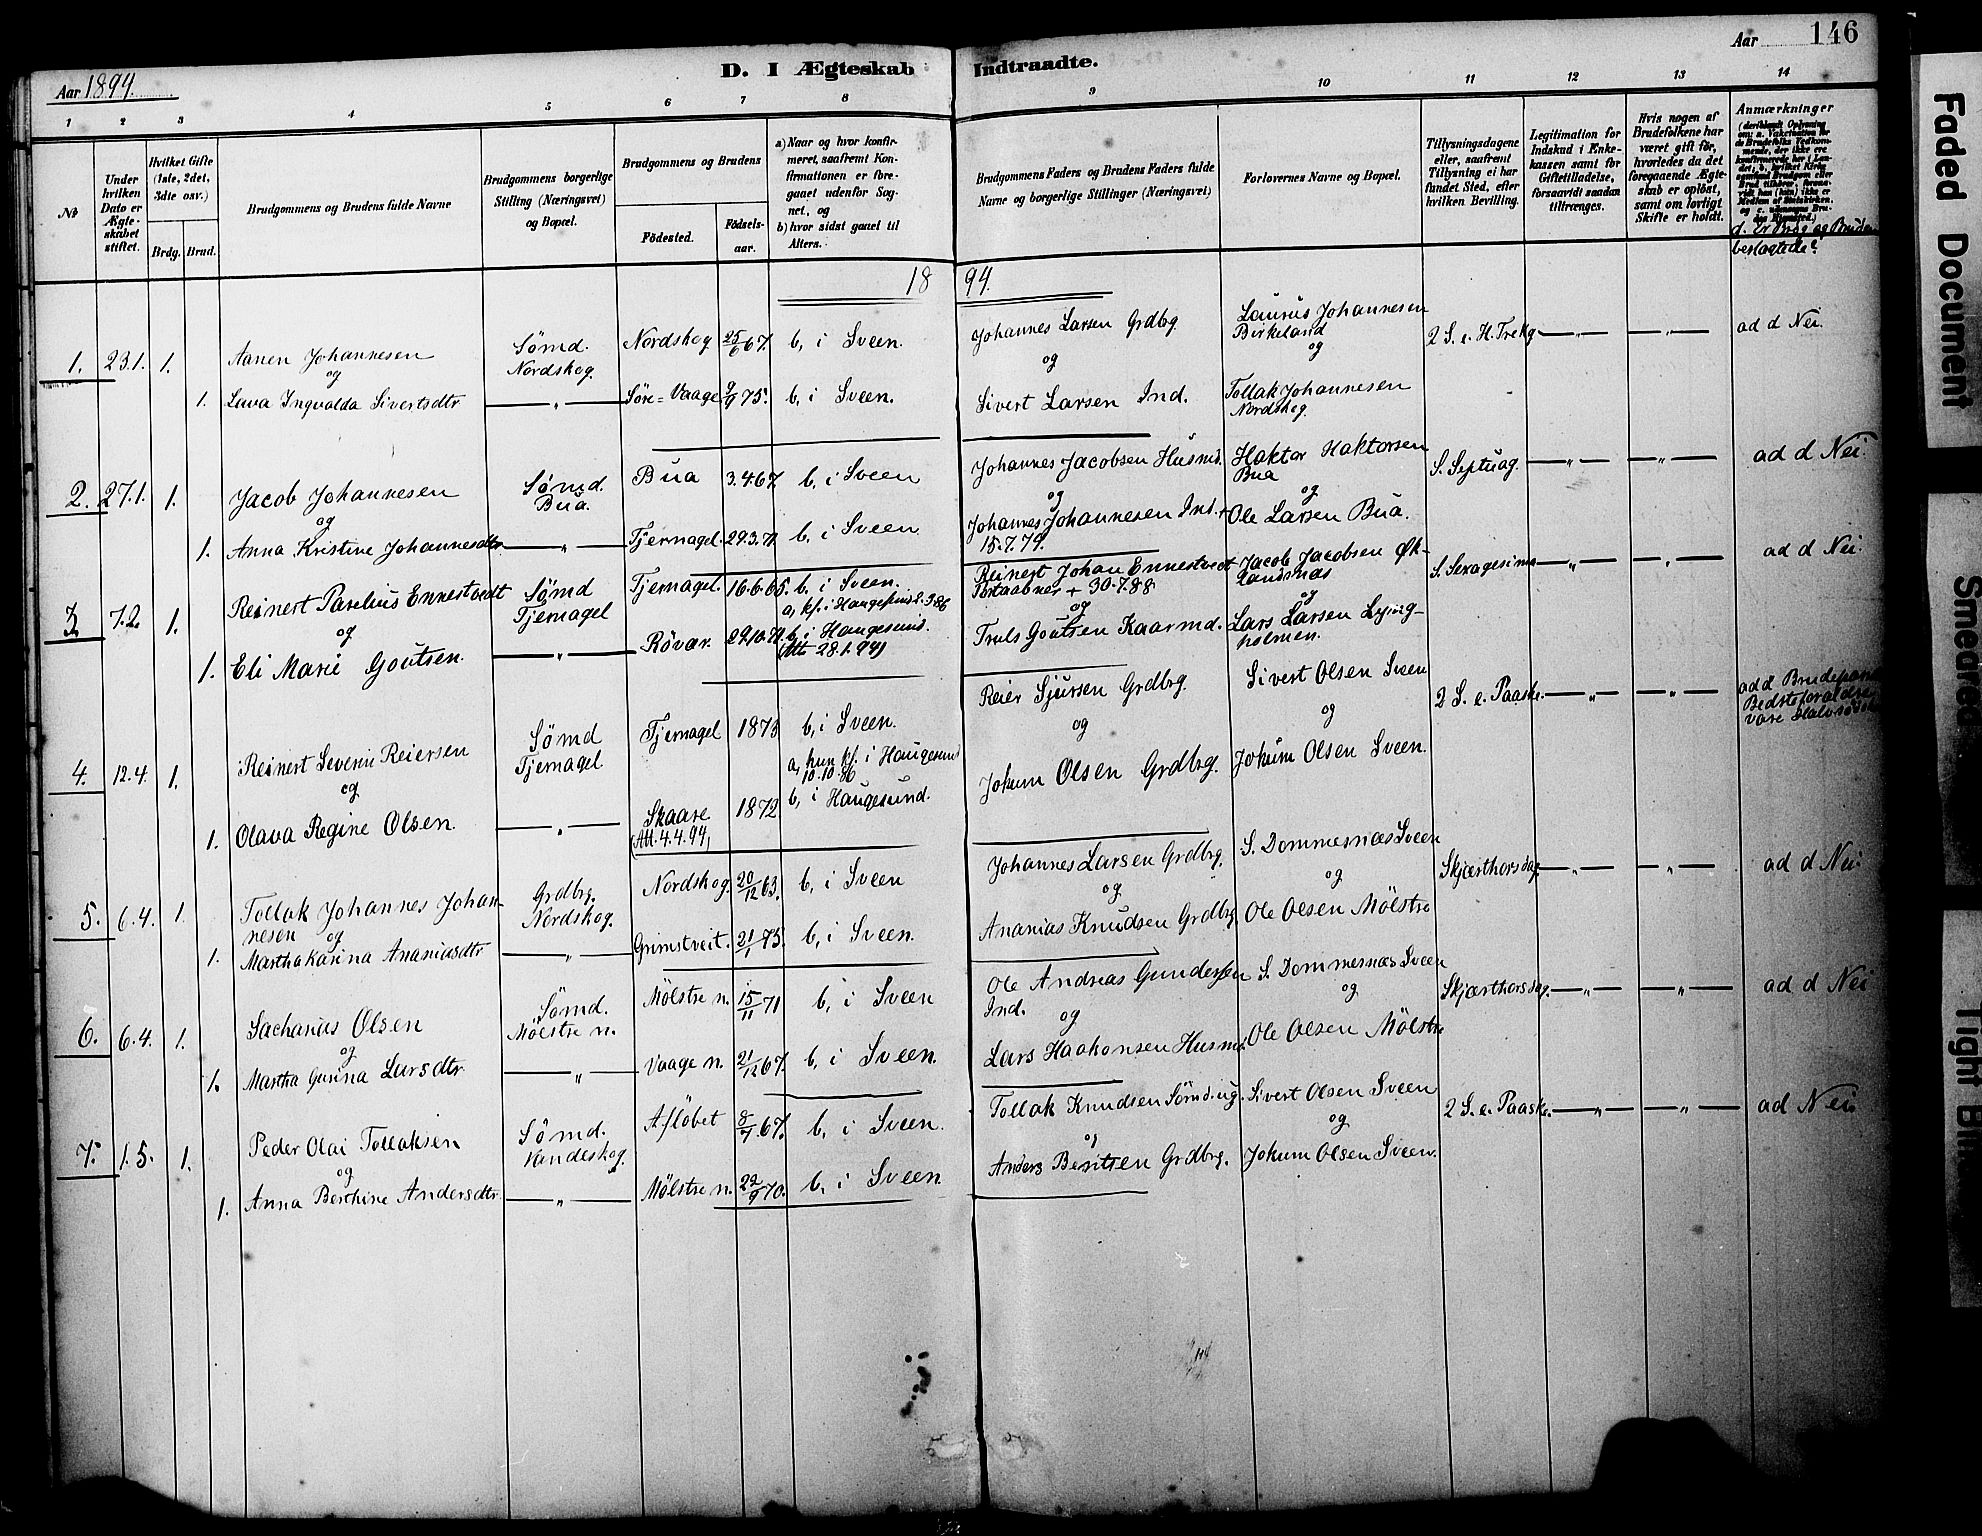 Aar 1894.
D. I Ægteskab Indtraadte.
Aar 146
1 2 3 4 5 6 7 8 9 10 11 12 13 14
№
Under hvilken Dato er Ægteskabet stiftet.
Hvilket Gifte (1ste, 2det, 3dte osv.)
Brdg. Brud.
Brudgommens og Brudens fulde Navne
Brudgommens borgerlige Stilling (Næringsvei) og Bopæl.
Brudgommens og Brudens
Fødested. Fødsels-aar.
a) Naar og hvor konfirmeret, saafremt Konfirmationen er foregaaet udenfor Sognet, og
b) hvor sidst gaaet til Alters.
Brudgommens Faders og Brudens Faders fulde Navne og borgerlige Stillinger (Næringsvei)
Forlovernes Navne og Bopæl.
Tillysningsdagene eller, saafremt Tillysning ei har fundet Sted, efter hvilken Bevilling.
Legitimation for Indskud i Enkekassen samt for Giftetilladelse, forsaavidt saadan tiltrænges.
Hvis nogen af Brudefolkene har været gift før, hvorledes da det foregaaende Ægteskab er opløst, samt om lovligt Skifte er holdt.
Anmærkninger
d. Er Brdg og Bruden beslægtede?
1894.
1. 23.1. 1. Aanen Johannesen Sømd. Nordskog. Nordskog 25/6 67. b, i Sveen. Johannes Larsen Grdbrg. Laurus Johannesen Birkeland 2 S. e. H. Trekg — " — — " — ad d Nei.
og og og
1. Lava Ingvalda Sivertsdtr — " — Søre=Vaage 9/9 75. b, i Sveen. Sivert Larsen Ind. Tollak Johannesen Nordskog.
2. 27.1. 1. Jacob Johannesen Sømd. Bua. Bua 3.4.67. b, i Sveen Johannes Jacobsen Husmd. Haktor Haktorsen Bua S. Septuag. — " — — " — ad d Nei.
og og og
1. Anna Kristine Johannesdtr — " — Tjernagel. 29.3.71. b, i Sveen Johannes Johannesen Ind. + 15.7.79. Ole Larsen Bua.
3. 7.2. 1. Reinert Paselius Ennestvedt Sømd Tjernagel Tjernagel. 16.6.65. b, i Sveen. a, kf. i Haugesund 2.3.86 Reinert Johan Ennestvedt Postaabner + 30.7.88 Jacob Jacobsen Øklandsnæs S. Sexagesima — " — — " — ad d Nei.
og og og
1. Eli Marie Goutsen. — " — Røvær. 29.10.71. b, i Haugesund. (Att. 28.1.94) Truls Goutsen Kaarmd. Lars Larsen Lyngholmen.
4. 12.4. 1. Reinert Severin Reiersen Sømd Tjernagel Tjernagel 1873 b, i Sveen. Reier Sjursen Grdbrg. Sivert Olsen Sveen 2 S. e. Paaske. — " — — " — ad d Bedsteforældre vare
og og og
1. Olava Regine Olsen. — " — Skaare (Att. 4.4.94) 1872 a, hun kf. i Haugesund 10.10.86 b, i Haugesund. Jokum Olsen Grdbrg. Jokum Olsen Sveen.
5. 6.4. 1. Tollak Johannes Johannesen Grdbrg. Nordskog. Nordskog. 20/12 63. b, i Sveen Johannes Larsen Grdbrg. S. Dommersnæs Sveen Skjærthorsdag. — " — — " — ad d Nei.
og og og
1. Martha Karina Ananiasdtr — " — Grimstveit. 21/1 75. b, i Sveen. Ananias Knudsen Grdbrg. Ole Olsen Mølstre
6. 6.4. 1. Sacharius Olsen Sømd. Mølstre n. Mølstre n. 15/11 71 b, i Sveen Ole Andreas Gundersen Ind. S. Dommersnæs Sveen Skjærthorsdag. — " — — " — ad d Nei
og og og
1. Martha Gurina Larsdtr — " — Vaage n. 21/12 67. b, i Sveen. Lars Haakonsen Husmd. Ole Olsen Mølstre
7. 1.5. 1. Peder Olai Tollaksen Sømd. Vandeskog. Afløbet 8/7. 67. b, i Sveen. Tollak Knudsen Sømd. ug. Sivert Olsen Sveen 2 S. e. Paaske. — " — — " — ad Nei.
og og og
1. Anna Berthine Andersdtr. — " — Mølstre n. 22/9 70. b, i Sveen Anders Bentsen Grdbrg. Jokum Olsen Sveen.
Faded Document
Smeared
Tight Bi